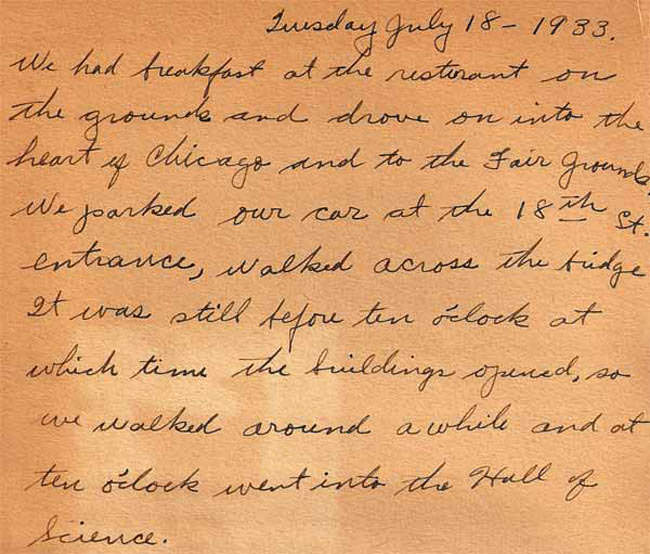 Tuesday July 18 - 1933.
We had breakfast at the resturant on
the grounds and drove on into the
heart of Chicago and to the Fair Grounds.
We parked our car at the 18th St.
entrance, walked across the bridge
It was still before ten o'clock at
which time the buildings opened, so
we walked around awhile and at
ten o'clock went into the Hall of
Science.